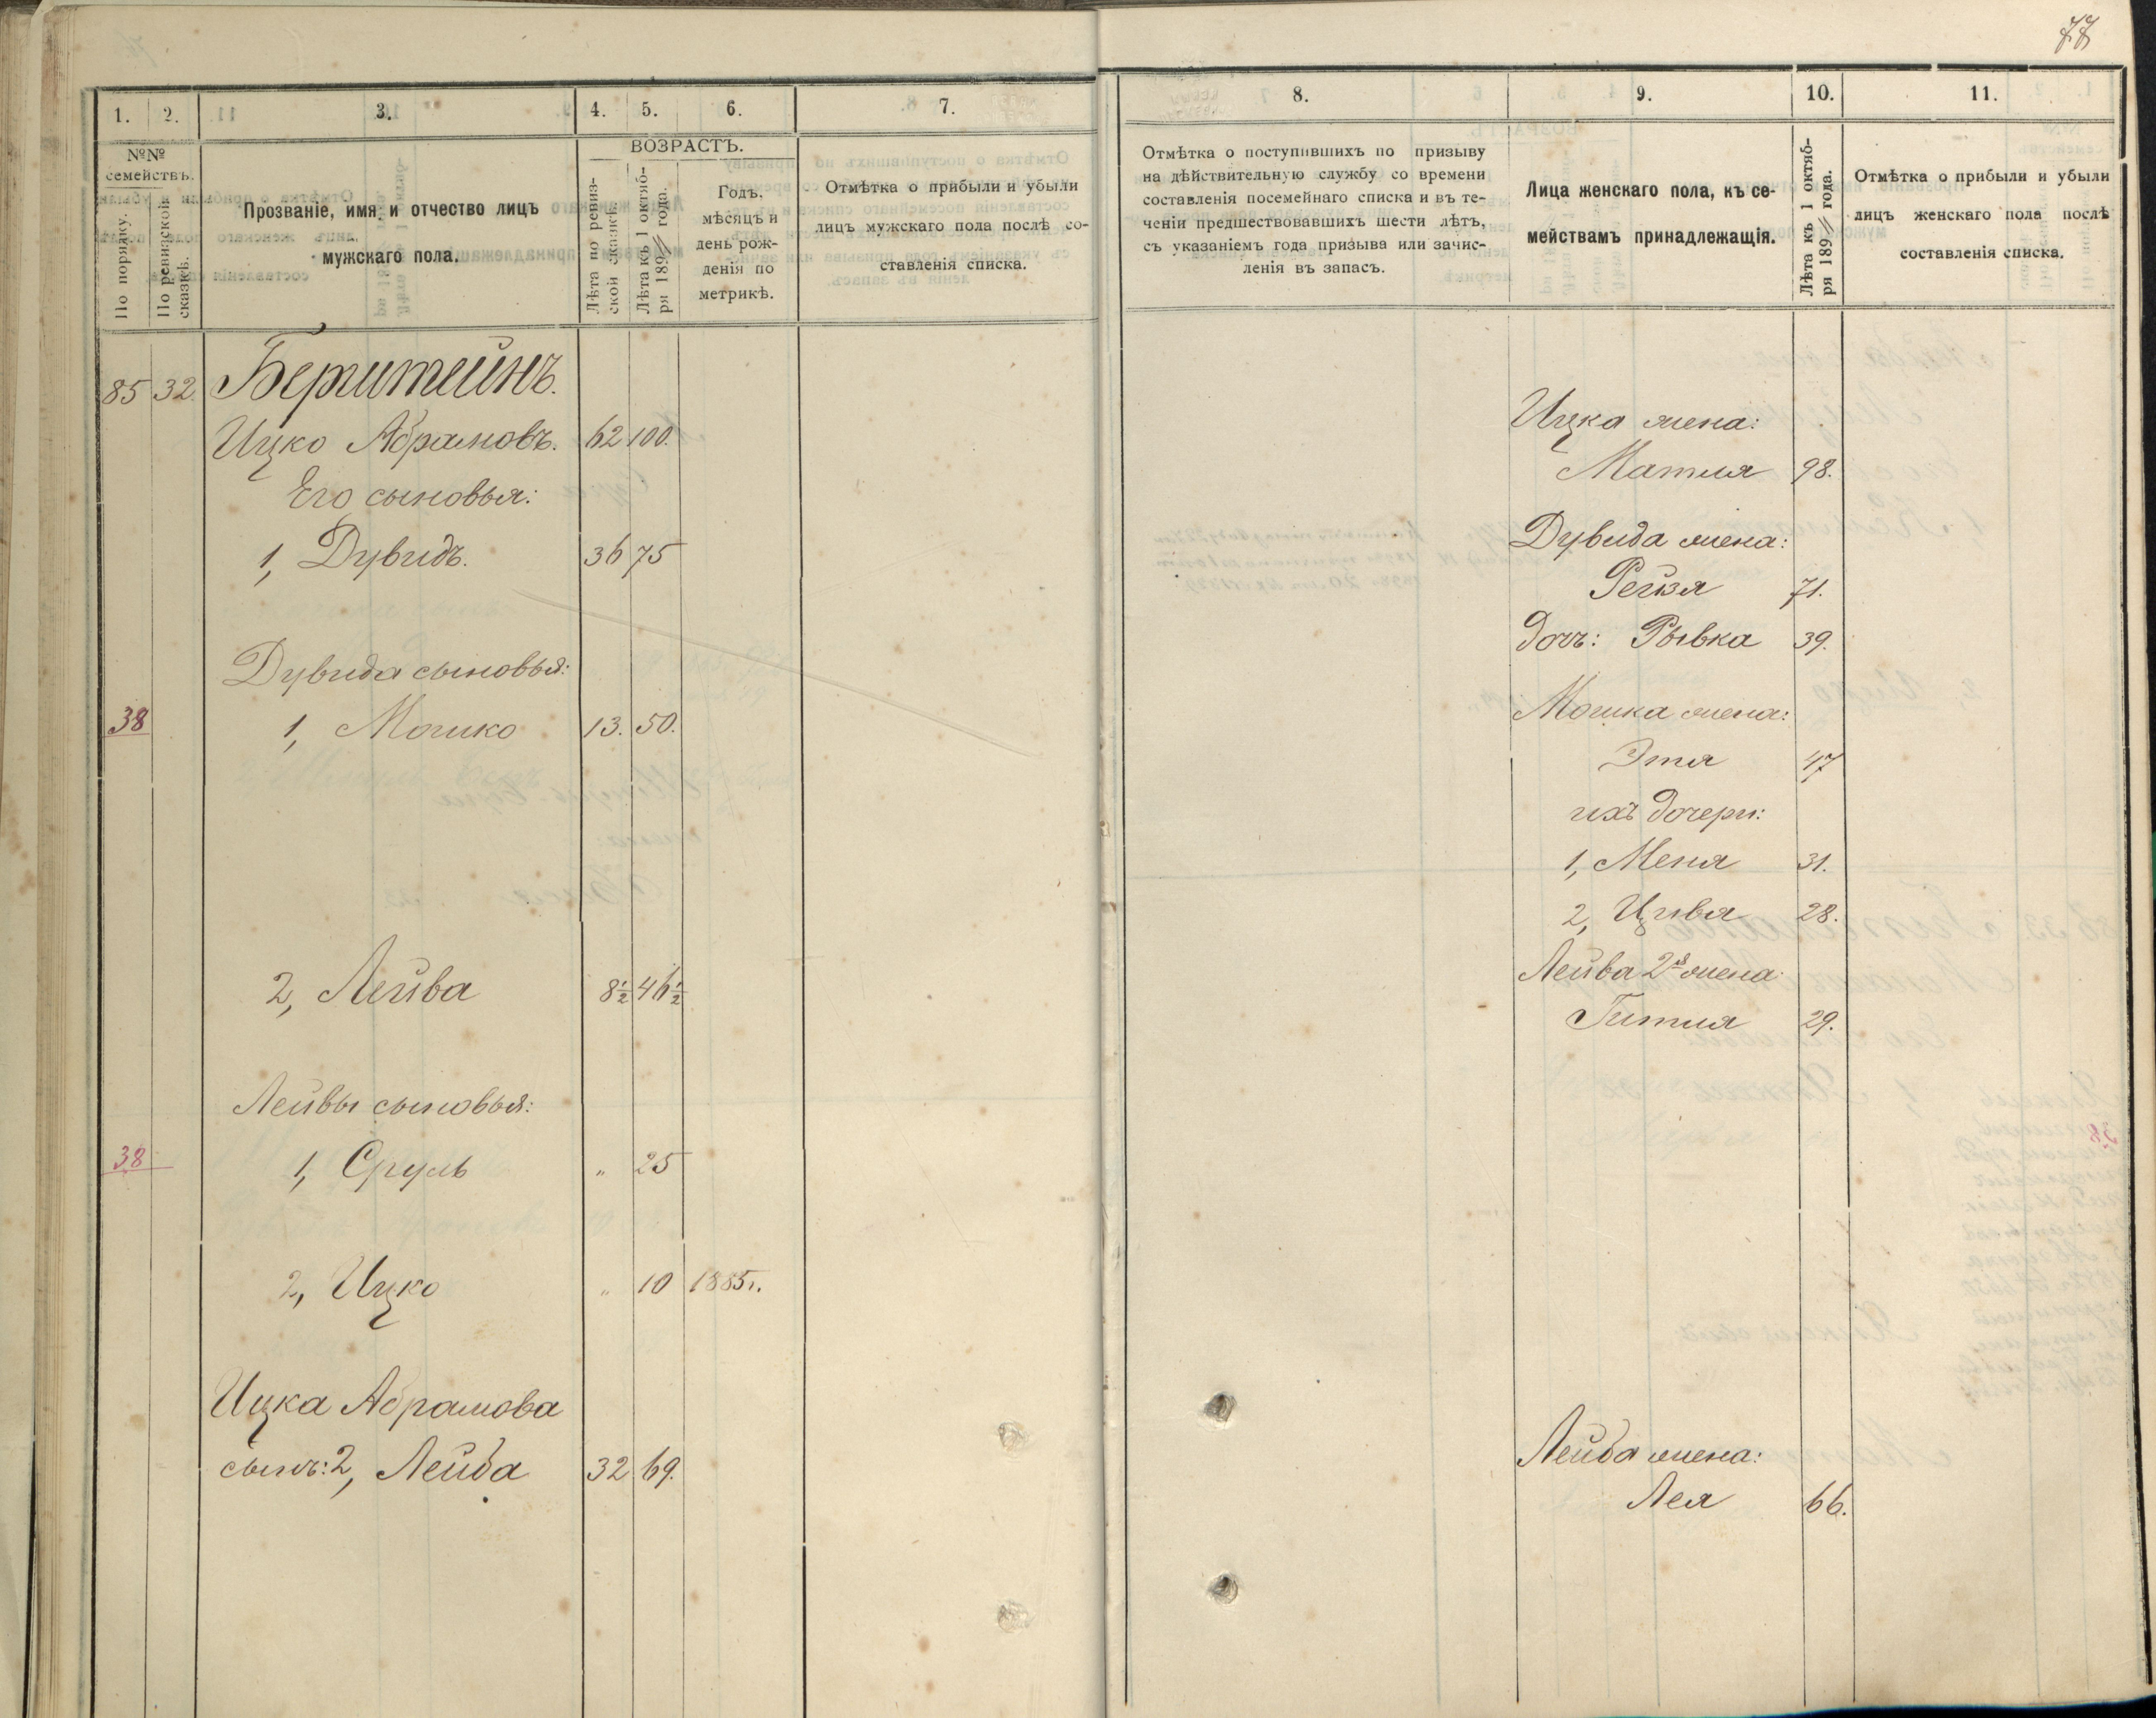 77
1. 2. 3. 4. 5. 6. 7.
№№ семействъ.
По порядку.
По ревизской сказкѣ.
Прозваніе, имя и отчество лицъ
мужскаго пола.
ВОЗРАСТЪ.
Лѣта по ревиз-
ской сказкѣ.
Лѣта къ 1 октяб-
ря 189 года.
Годъ,
мѣсяцъ и
день рож-
денія по
метрикѣ.
Отмѣтка о прибыли и убыли
лицъ мужскаго пола послѣ со-
ставленія списка.
85 32. Берштейнъ.
Ицко Абрамовъ. 62 100.
Его сыновья:
1, Дувидъ. 36 75
Дувида сыновья:
38 1, Мошко 13. 50.
2, Лейва 8½ 46½
Лейвы сыновья:
38 1, Сруль " 25
2, Ицко " 10 1885 г.
Ицка Абрамова
сынъ: 2, Лейба 32 69.
8. 9. 10. 11.
Отмѣтка о поступившихъ по призыву
на дѣйствительную службу со времени
составленія посемейнаго списка и въ те-
ченіи предшествовавшихъ шести лѣтъ,
съ указаніемъ года призыва или зачис-
ленія въ запасъ.
Лица женскаго пола, къ се-
мействамъ принадлежащія.
Лѣта къ 1 октяб-
ря 189 года.
Отмѣтка о прибыли и убыли
лицъ женскаго пола послѣ
составленія списка.
Ицка жена:
Матля 98.
Дувида жена:
Рейзя 71.
дочь: Рывка 39.
Мошка жена:
Этя 47
ихъ дочери:
1, Меня 31.
2, Цивя 28.
Лейва 2я жена:
Гитля 29.
Лейба жена:
Лея 66.